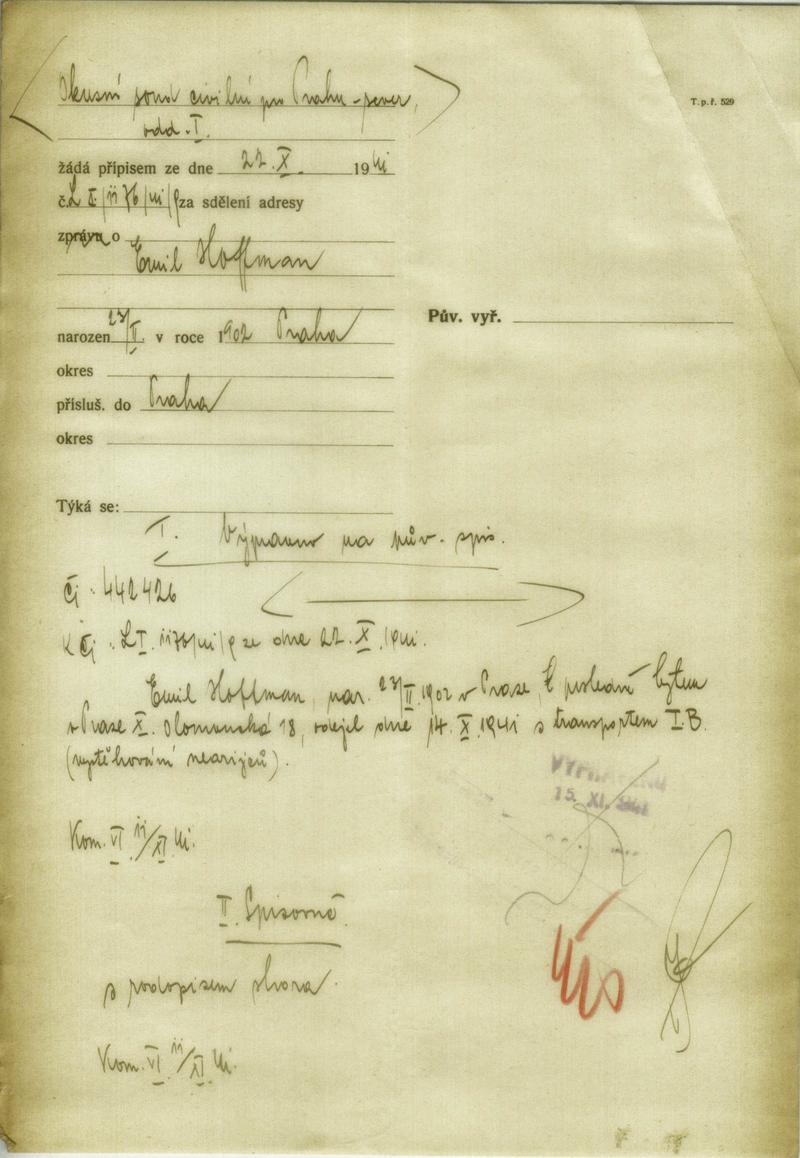 Okresní soud civilní pro Prahu-sever,
odd. I.
T. p. ř. 529
žádá přípisem ze dne 22. X. 1941
č. L I 1176/41/9 za sdělení adresy
zprávu o
Emil Hoffman
Pův. vyř.
narozen 27/II. v roce 1902 Praha
okres
přísluš. do Praha
okres
Týká se:
I. Výpravno na pův. spis.
Čj. 442426
K Čj. L I. 1176/41/9 ze dne 22. X. 1941.
Emil Hoffman, nar. 27/II. 1902 v Praze, posledně bytem
v Praze X. Olomoucká 18, odejel dne 14. X. 1941 s transportem I.B.
(vystěhování nearijců).
15. XI. 1941
Kom. VI 11/XI 41.
II. Spisovně
s rodopisem shora.
Kom. VI 11/XI 41.